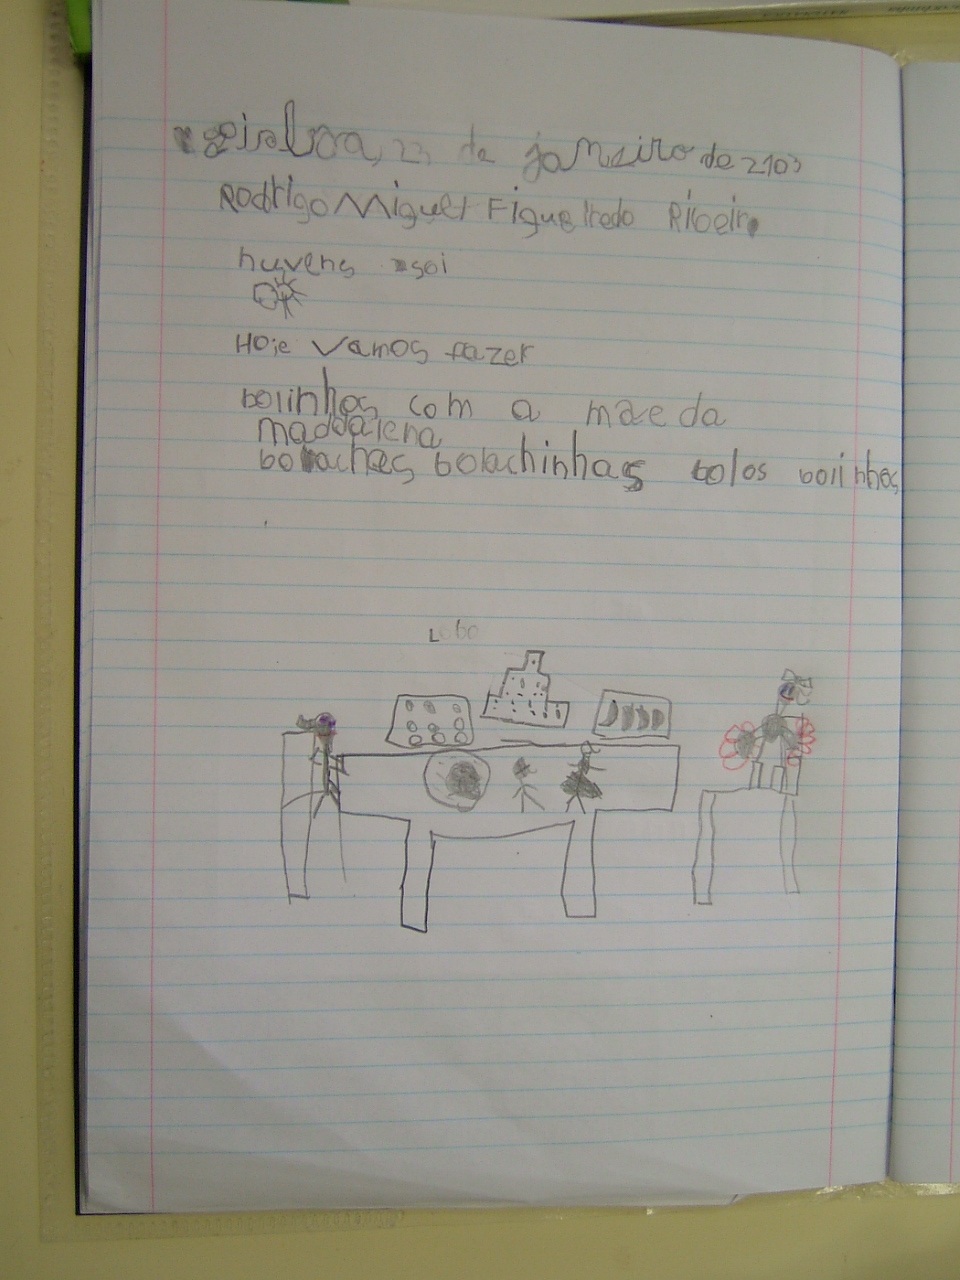 23 de janeiro de 2103
Rodrigo Miguel Figueiredo Ribeiro
nuvens sol
Hoje vamos fazer
bolinhos com a mãe da
maddalena
bolachas bolachinhas bolos bolinhos
Lobo